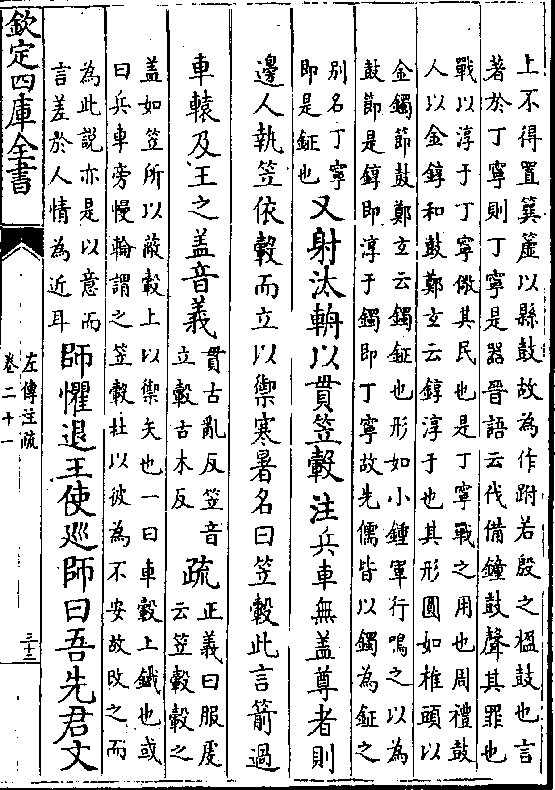 上不得置簨簴以縣鼓故為作跗若殷之楹鼓也言
著於丁寧則丁寧是器晉語云伐備鐘鼓聲其罪也
戰以淳于丁寧儆其民也是丁寧戰之用也周禮鼓
人以金錞和鼓鄭玄云錞淳于也其形圓如椎頭以
金鐲節鼓鄭玄云鐲鉦也形如小鍾軍行鳴之以為
鼓節是錞即淳于鐲即丁寧故先儒皆以鐲為鉦之
別名丁寧
即是鉦也
又射汰輈以貫笠轂注兵車無盖尊者則
邊人執笠依轂而立以禦寒暑名曰笠轂此言箭過
車轅及王之盖音義
貫古亂反笠音
立轂古木反
疏
正義曰服虔
云笠轂轂之
盖如笠所以蔽轂上以禦矢也一曰車轂上鐵也或
曰兵車旁幔輪謂之笠轂杜以彼為不安故改之而
為此説亦是以意而
言差於人情為近耳
師懼退王使廵師曰吾先君文
欽定四庫全書
左傳注疏
卷二十一
三十三